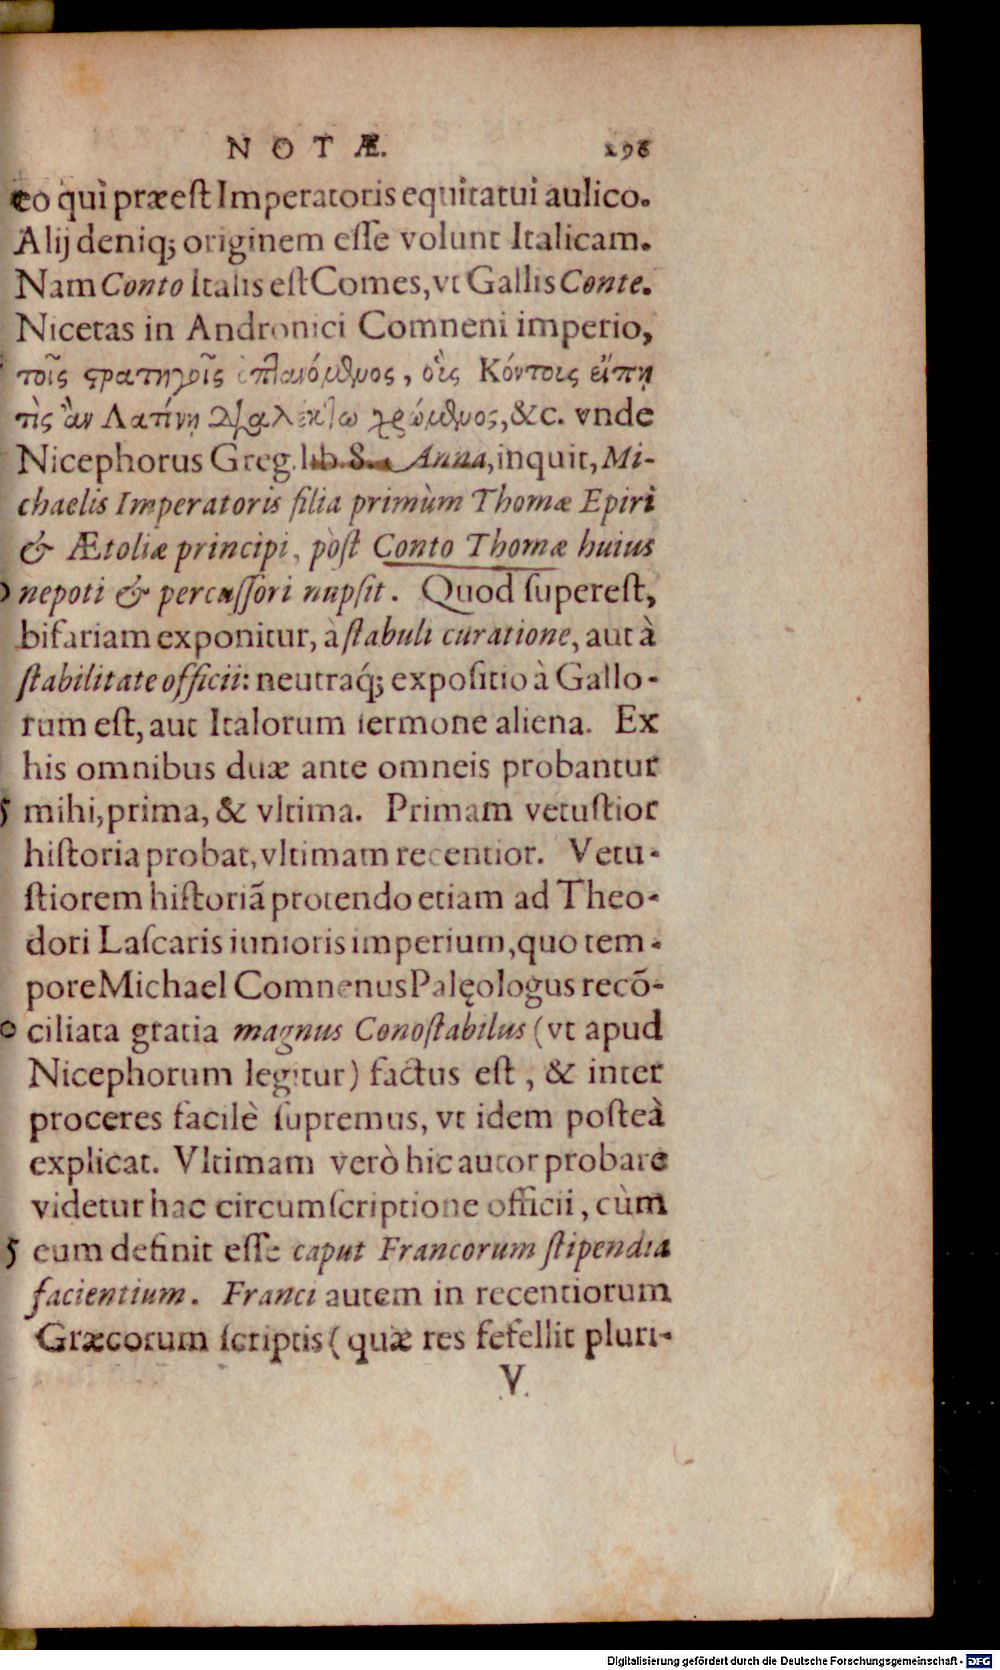 NOTÆ. 298
eo qui præest Imperatoris equitatui aulico.
Alij deniq; originem esse volunt Italicam.
Nam Conto Italis est Comes, vt Gallis Conte.
Nicetas in Andronici Comneni imperio,
τοῖς στρατηγοῖς ἐπλανόμενος, οὓς Κόντους εἴπῃ
τὶς ἂν Λατίνῃ χρώμενος, &c. vnde
Nicephorus Greg. lib. 8. Anna, inquit, Mi-
chaelis Imperatoris filia primùm Thomæ Epiri
& Ætoliæ principi, pòst Conto Thomæ huius
nepoti & percussori nupsit. Quod superest,
bifariam exponitur, à stabuli curatione, aut à
stabilitate officii: neutraq́; expositio à Gallo-
rum est, aut Italorum sermone aliena. Ex
his omnibus duæ ante omneis probantur
5 mihi, prima, & vltima. Primam vetustior
historia probat, vltimam recentior. Vetu-
stiorem historiã protendo etiam ad Theo-
dori Lascaris iunioris imperium, quo tem-
pore Michael Comnenus Palęologus recõ-
ciliata gratia magnus Conostabilus (vt apud
Nicephorum legitur) factus est, & inter
proceres facilè supremus, vt idem posteà
explicat. Vltimam verò hic autor probare
videtur hac circumscriptione officii, cùm
5 eum definit esse caput Francorum stipendia
facientium. Franci autem in recentiorum
Græcorum scriptis (quæ res fefellit pluri-
V
Digitalisierung gefördert durch die Deutsche Forschungsgemeinschaft - DFG